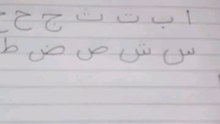 ا ب ت ث ج ح خ
س ش ص ض ط